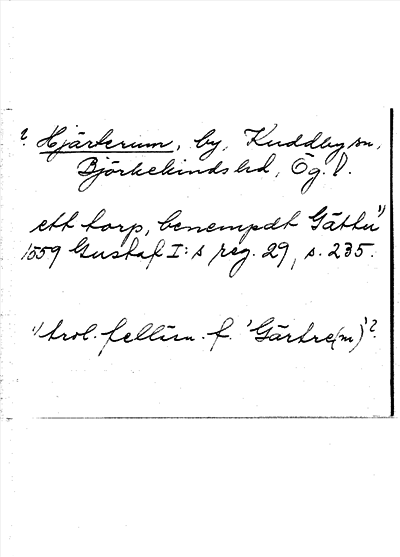 ? Hjärterum, by, Kuddby sn,
Björkekinds hd, Ög. l.
ett torp, benempdt Gättu¹⁾
1559 Gustaf I:s reg. 29, s. 235.
¹⁾ trol. felläsn. f. 'Gärtre(m)'?